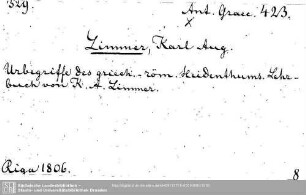 329.
Ant. Graec. 423.
x
Zimmer, Karl Aug.
Urbegriffe des griech.-röm. Heidenthums. Lehr-
buch von K. A. Zimmer.
Riga 1806.
8
Sächsische Landesbibliothek -
Staats- und Universitätsbibliothek Dresden